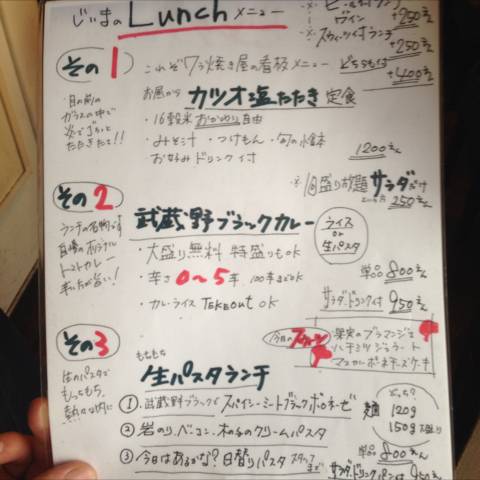 じぃまの Lunch メニュー
ワイン +250えん
スウィーツ付ランチ +250えん
+400えん
その1 これぞワラ焼き屋の看板メニュー
お昼から カツオ塩たたき 定食
・16穀米 おかわり自由
・みそ汁 ・つけもん
・お好みドリンク付
1200えん
目の前の
ガラスの中で
炎で
たたきたて!!
盛り放題 サラダ
250えん
その2
武蔵野ブラックカレー
ライス
or
生パスタ
ランチの名物です
自慢の
トマトカレー
・大盛り無料 特盛りもOK
・辛さ 0〜5
・カレーライス TAKEOUT OK
単品 800えん
サラダ・ドリンク付 950えん
その3
今日の
果実のブラマンジェ
ハチミツジェラート
マスカルポーネチーズケーキ
もちもち
生パスタランチ
生のパスタで
もっちもち。
熱々な内に
① 武蔵野ブラックで スパイシーミートブラックボロネーゼ
② 岩のり、ベーコン、木の子のクリームパスタ
③ 今日はあるかな? 日替りパスタ スタッフまで
麺
120g
150g
単品 800えん
サラダ、ドリンク、パン付 950えん